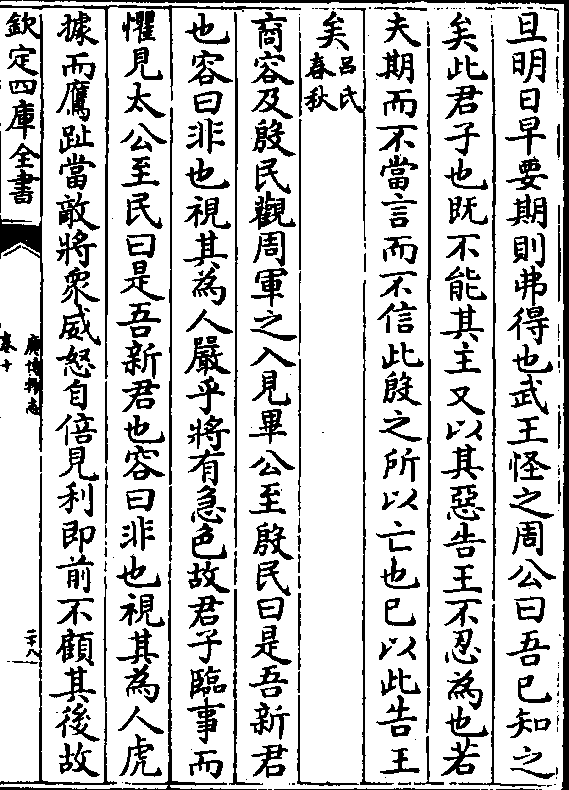 旦明日早要期則弗得也武王怪之周公曰吾已知之
矣此君子也既不能其主又以其惡告王不忍為也若
夫期而不當言而不信此殷之所以亡也已以此告王
矣呂氏春秋
商容及殷民觀周軍之入見畢公至殷民曰是吾新君
也容曰非也視其為人嚴乎將有急色故君子臨事而
懼見太公至民曰是吾新君也容曰非也視其為人虎
據而鷹趾當敵將衆威怒自倍見利即前不顧其後故
欽定四庫全書
廣博物志
卷十
二十八